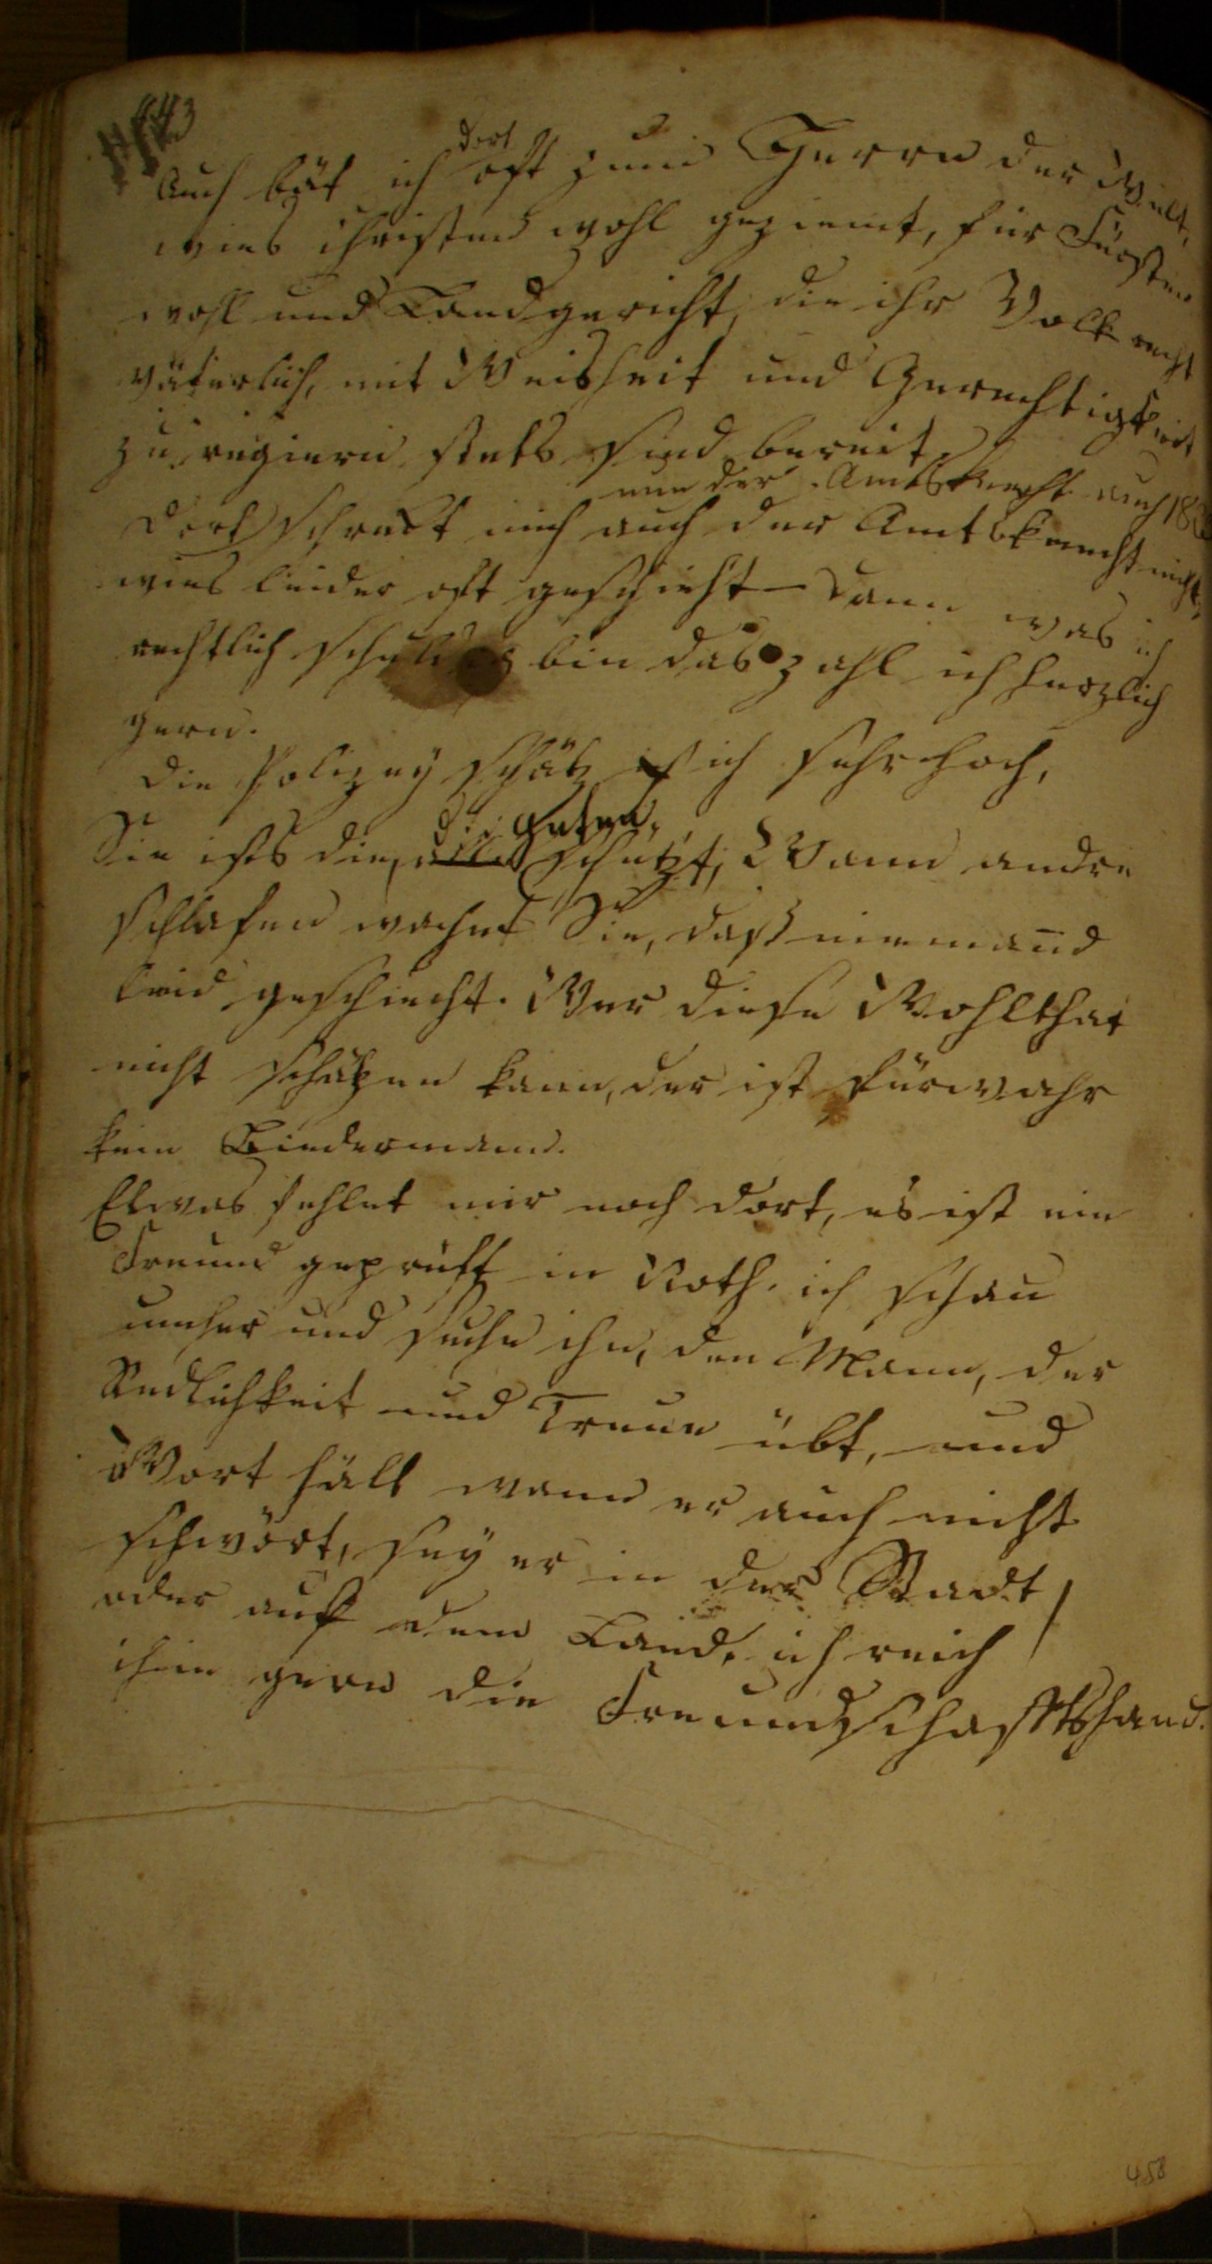 443
dort
Auch bät ich oft zum Herrn der Welt,
wies christen wohl geziemt, für Fürsten
wohl und Landgericht, die ihr Volk recht
väterlich, mit Weisheit und Gerechtigkeit
zu regiern stets sind bereit,
nun der Amtsknecht auch
Dort schreckt mich auch der Amtsknecht nicht,
wies leider oft geschieht – dann was ich
rechtlich schuldig bin das zahl ich herzlich
gern.
Die Polizey schätz ich sehr hoch,
die Guten,
Sie ists die, alles schützt, Wann andre
schlafen wachet Sie, daß niemand
leid geschiecht. Wer diese Wohlthat
nicht schäzen kann, der ist fürwahr
kein Biedermann.
Etwas fehlet mir noch dort, es ist ein
Freund geprüft in Noth. ich schau
umher und suche ihn, den Mann, der
Redlichkeit und Treue übt, und
Wort hält wann er auch nicht
schwört, sey er in der Stadt
oder auf dem Land, ich reich
ihm gern die Freundschaftshand.
458